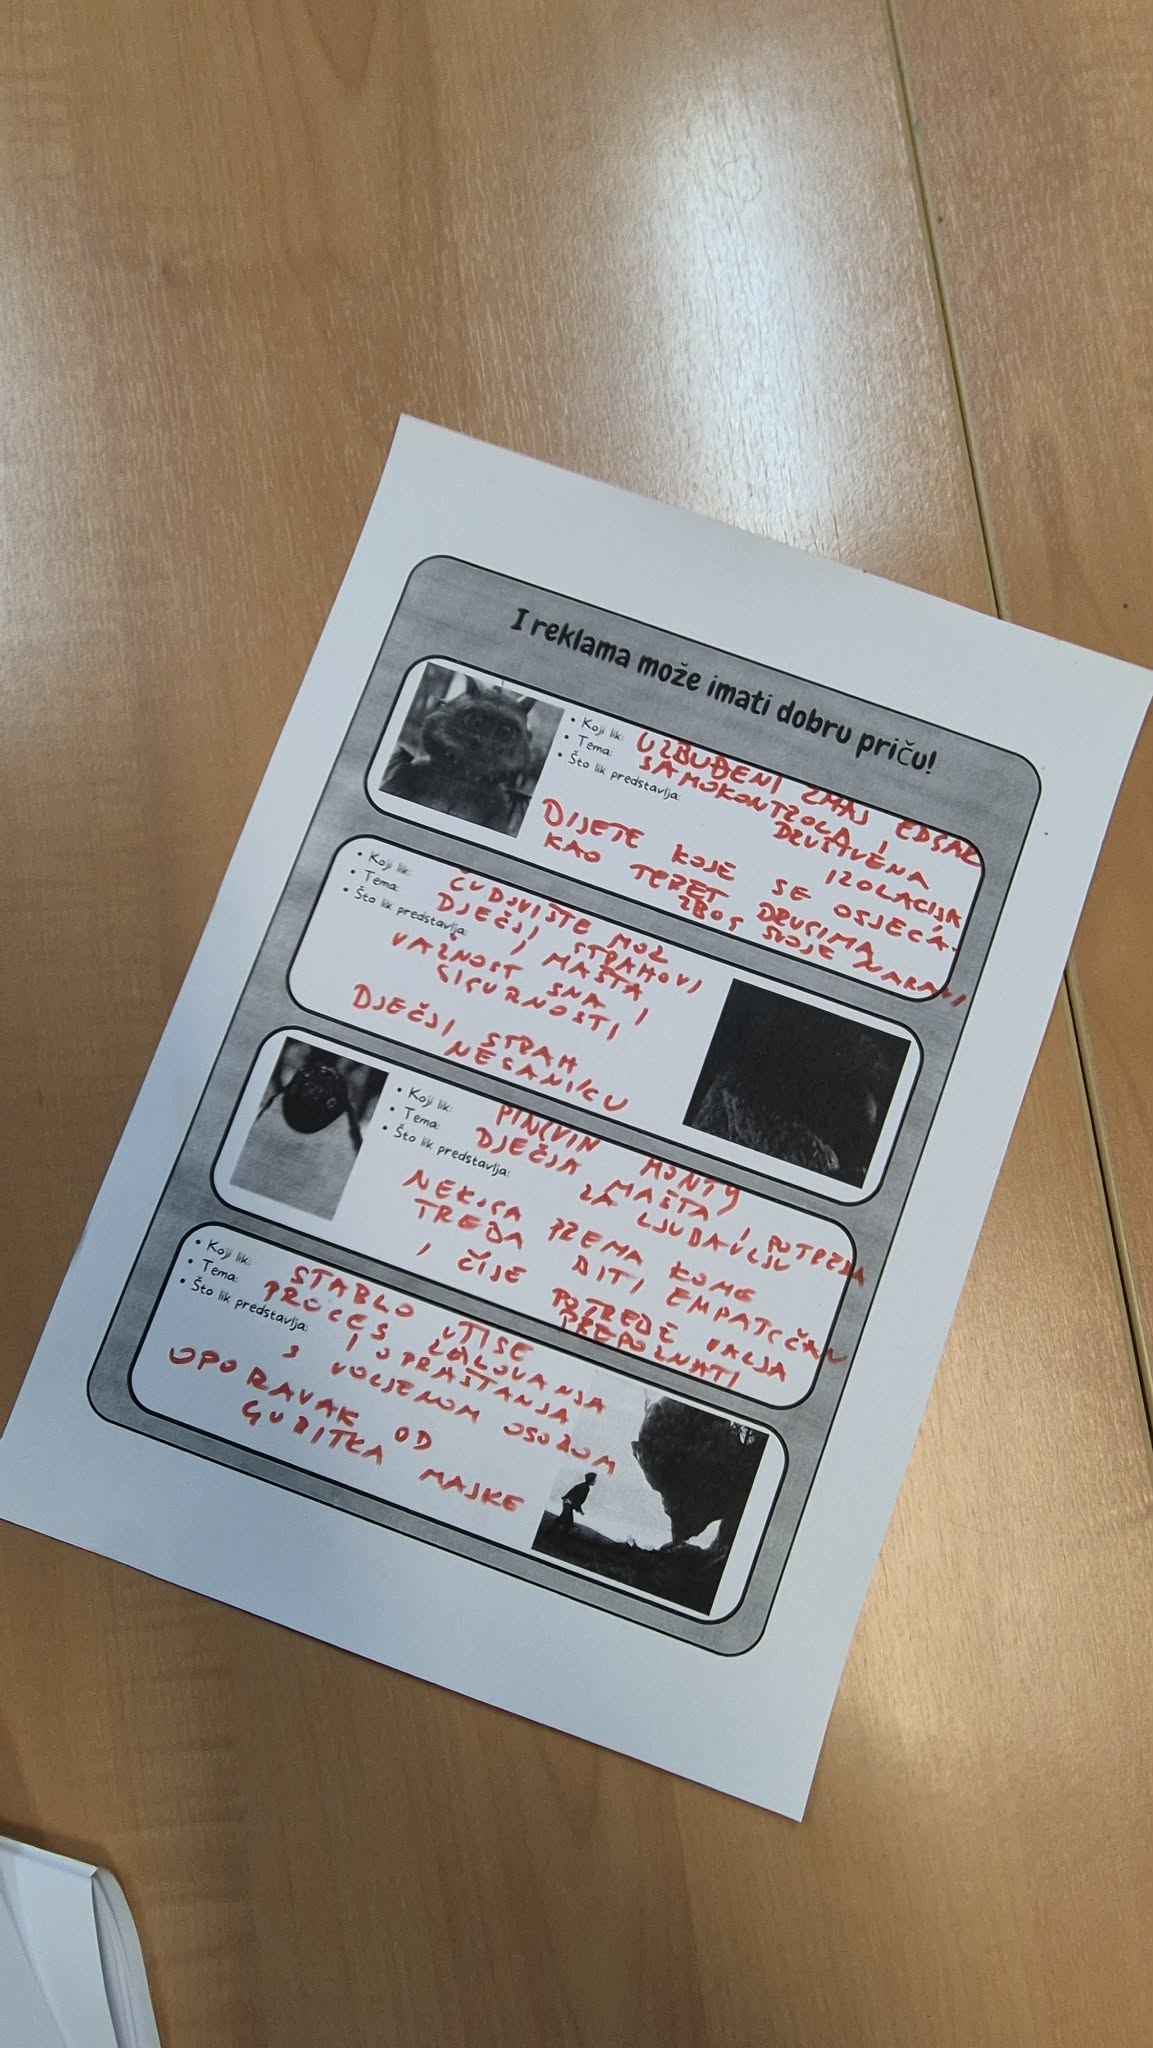 I reklama može imati dobru priču!
• Koji lik: UZBUĐENI ZMAJ EDGAR
• Tema: SAMOKONTROLA I
DRUŠTVENA
IZOLACIJA
• Što lik predstavlja:
DIJETE KOJE SE OSJEĆA
KAO TERET DRUGIMA
ZBOG SVOJE NARAVI
• Koji lik: ČUDOVIŠTE MOZ
• Tema: DJEČJI STRAHOVI
I MAŠTA
VAŽNOST SNA I
SIGURNOSTI
• Što lik predstavlja:
DJEČJI STRAH
NESANICU
• Koji lik: PINGVIN MONTY
• Tema: DJEČJA MAŠTA I POTREBA
ZA LJUBAVLJU
• Što lik predstavlja:
NEKOGA PREMA KOME
TREBA BITI EMPATIČAN
I ČIJE POTREBE VALJA
PREPOZNATI
• Koji lik: STABLO UTJEHE
• Tema: PROCES ŽALOVANJA
I OPRAŠTANJA
S VOLJENOM OSOBOM
• Što lik predstavlja:
OPORAVAK OD
GUBITKA MAJKE